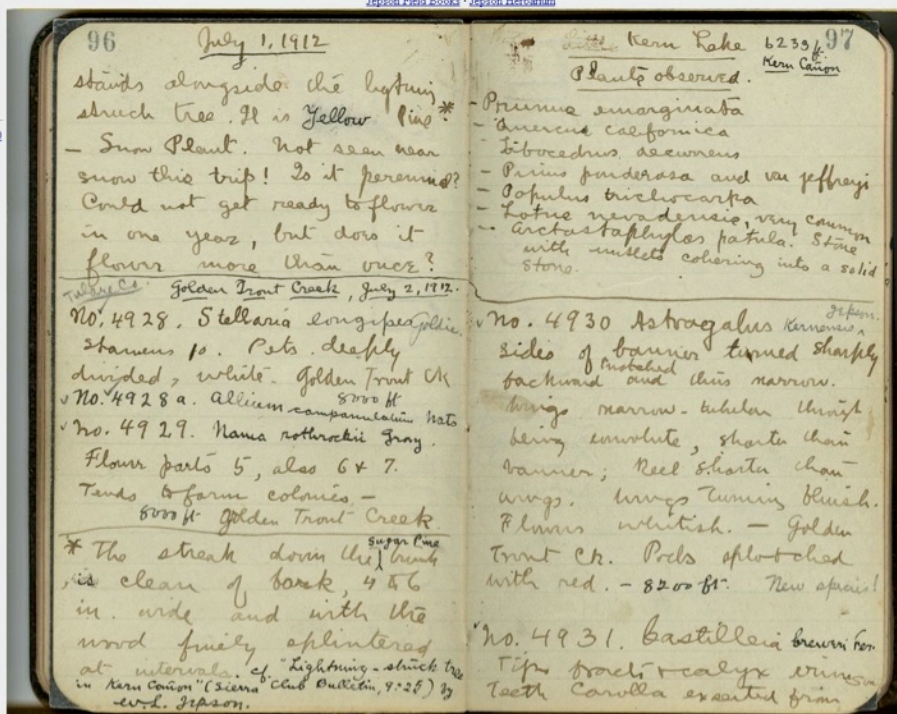 Jepson Field Books - Jepson Herbarium
96
July 1, 1912
stands alongside the lightning
struck tree. It is Yellow Pine*
— Snow Plant. Not seen near
snow this trip! Is it perennial?
Could not get ready to flower
in one year, but does it
flower more than once?
Tulare Co. Golden Trout Creek, July 2, 1912.
No. 4928. Stellaria longipes Goldie.
Stamens 10. Pets. deeply
divided, white. Golden Trout Ck
8000 ft
No. 4928a. Allium campanulatum Wats
No. 4929. Nama rothrockii Gray.
Flower parts 5, also 6 & 7.
Tends to form colonies —
8000 ft Golden Trout Creek.
* The streak down the sugar Pine trunk
is clean of bark, 4 to 6
in. wide and with the
wood finely splintered
at intervals. cf. "Lightning-struck tree
in Kern Cañon" (Sierra Club Bulletin, 9:25) by
W. L. Jepson.
97
Little Kern Lake 6239 ft.
Kern Cañon
Plants observed.
- Prunus emarginata
- Quercus californica
- Libocedrus decurrens
- Pinus ponderosa and var jeffreyi
- Populus trichocarpa
- Lotus nevadensis, very common
- Arctostaphylos patula. Stone
with nutlets cohering into a solid
stone.
No. 4930 Astragalus Kernensis Jepson.
sides of banner turned sharply
notched
backward and thus narrow.
Wings narrow-tubular through
being convolute, shorter than
banner; Keel shorter than
wings. Wings turning bluish.
Flowers whitish. — Golden
Trout Ck. Pods splotched
with red. — 8200 ft. New species!
No. 4931. Castilleia breweri Fer.
Tips bracts & calyx crimson
Teeth Corolla exserted from